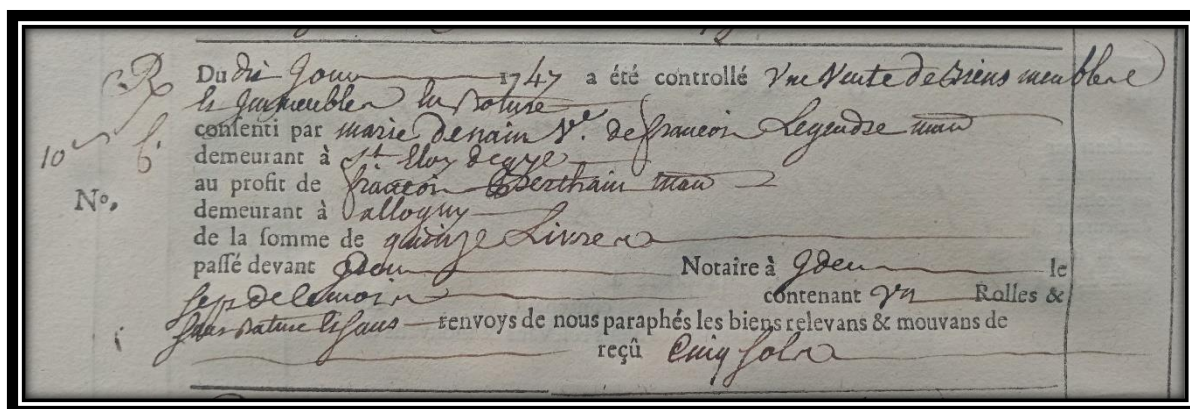 Du dit Jour 1747 a été controllé Vne Vente de Biens meubles
et Immeubles en Roture
consenti par marie Denain Ve. de francois Legendre man
demeurant à St Eloy degye
au profit de francois Berthain man
demeurant à allogny
de la somme de quinze Livres
passé devant Notaire à le
sept de ce mois contenant vn Rolles &
sans renvoys de nous paraphés les biens relevans & mouvans de
reçû Cinq sols
10
No.